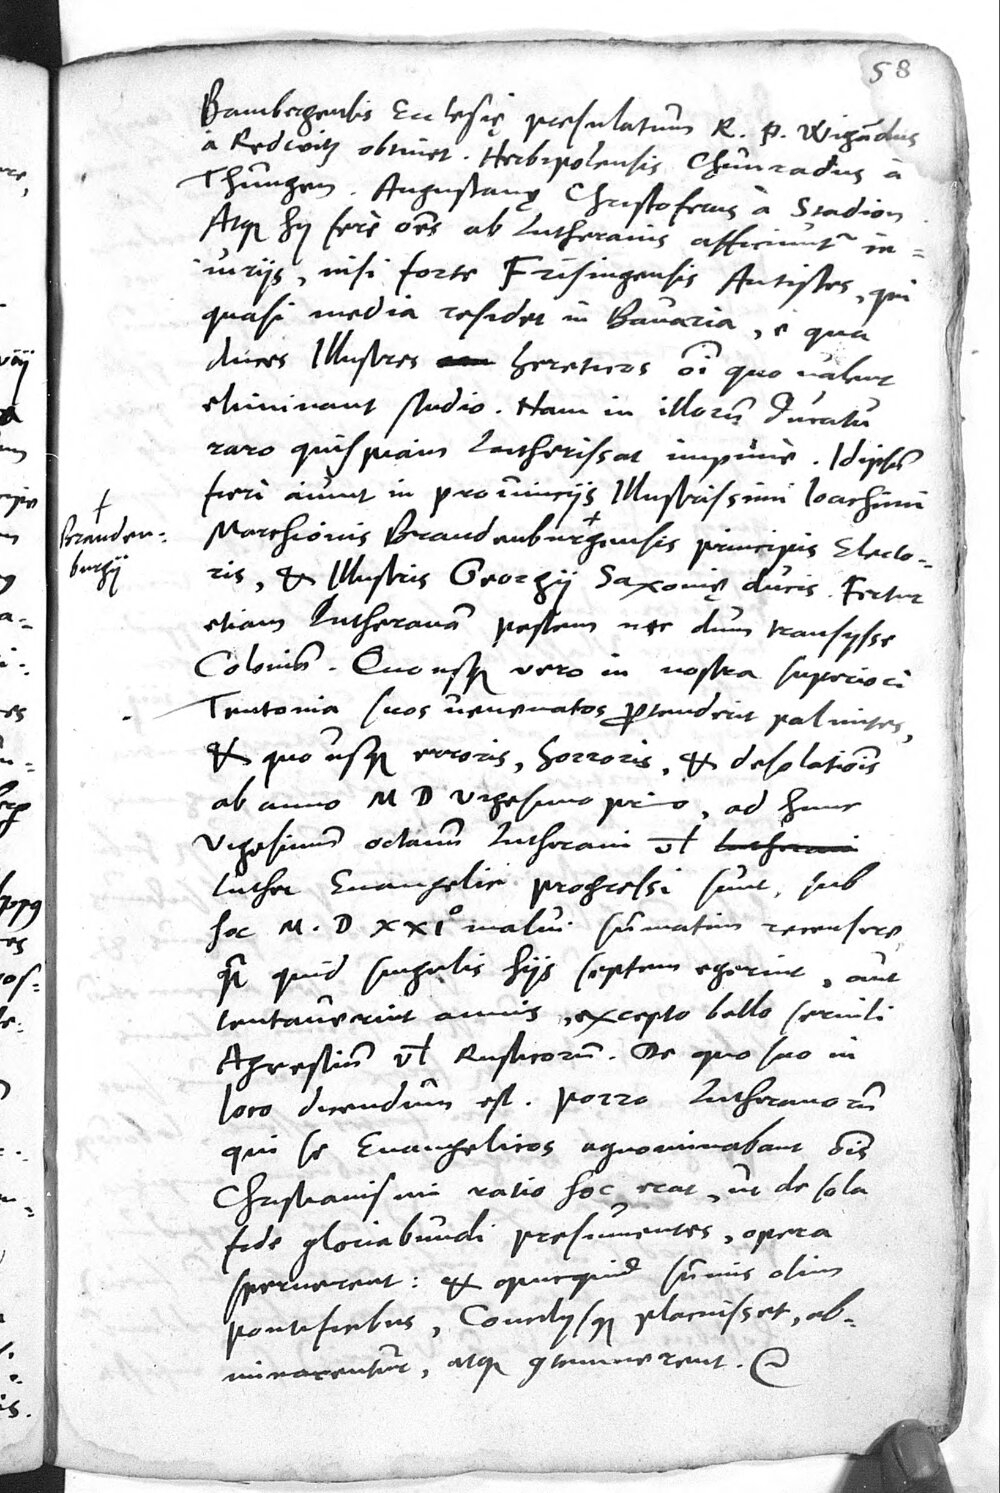 58
Bambergensis Ecclesię presulatum R. P. Wigādus
à Redwitz obtinet. Herbipolensis Chunradus à
Thungen. Augustanę Christoferus à Stadion.
Atq; hij ferè oēs ab Lutheranis afficiunt~ in=
iurijs, nisi forte Frisingensis Antistes, qui
quasi media residet in Bauaria, è qua
duces Illustres hereticos oī quo ualent
eliminant studio. Nam in illorū Ducatu
raro quispiam Lutherissat impunè. Idipsū
fieri aiunt in prouincijs Illustrissimi Ioachimi
Marchionis Brandenburgensis principis Electo=
+
Branden=
burgij
ris, & Illustris Georgij Saxonię ducis. Fertur
etiam Lutheranā pestem nec dum transysse
Coloniā. Quousq; vero in nostra superiori
Teutonia suos uenenatos ꝓtenderit palmites,
& quousq; erroris, horroris, & desolatiōis
ab anno M D vigesimo primo, ad hunc
vigesimū octauū Lutherani vl
Luther Euangelici progressi sunt, sub
hoc M. D XXI° malui sūmatim recensere
q̄ quid singulis hijs septem egerint, aut
tentauerint annis, excepto bello seruili
Agrestiū vl Rusticorū. De quo suo in
loco dicendum est. Porro Lutheranorū
qui se Euangelicos agnominabant oīs
Christianismi ratio hoc erat, ut de sola
fide gloriabundi presumentes, opera
spernerent: & quicquid sūmis olim
pontificibus, Concilijsq; placuisset, ab=
minarentur, atq; ꝯtemnerent.